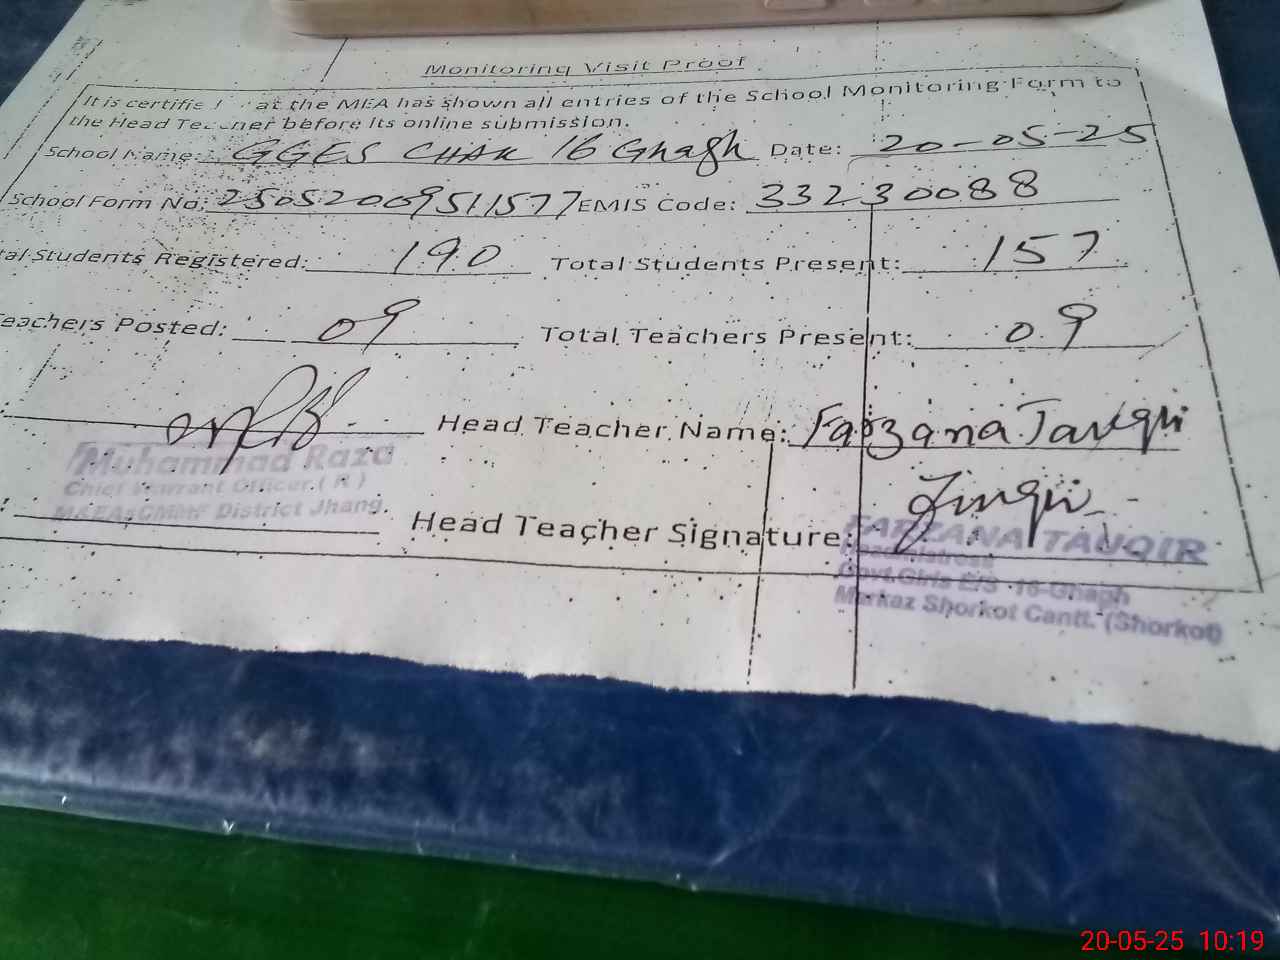 Monitoring Visit Proof
It is certified at the MEA has shown all entries of the School Monitoring Form to
the Head Teacher before its online submission.
School Name: GGES CHAK 16 Ghagh Date: 20-05-25
School Form No: 25052009511577 EMIS Code: 33230088
tal Students Registered: 190 Total Students Present: 157
eachers Posted: 09 Total Teachers Present: 09
Head Teacher Name: Farzana Tauqir
Muhammad Raza
Chief Warrant Officer ( R )
District Jhang.
Head Teacher Signature:
FARZANA TAUQIR
Headmistress
Govt.Girls E/S 16-Ghagh
Markaz Shorkot Cantt. (Shorkot)
20-05-25 10:19